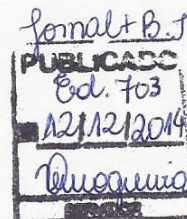 Jornal + B.J
PUBLICADO
Ed. 703
12/12/2014